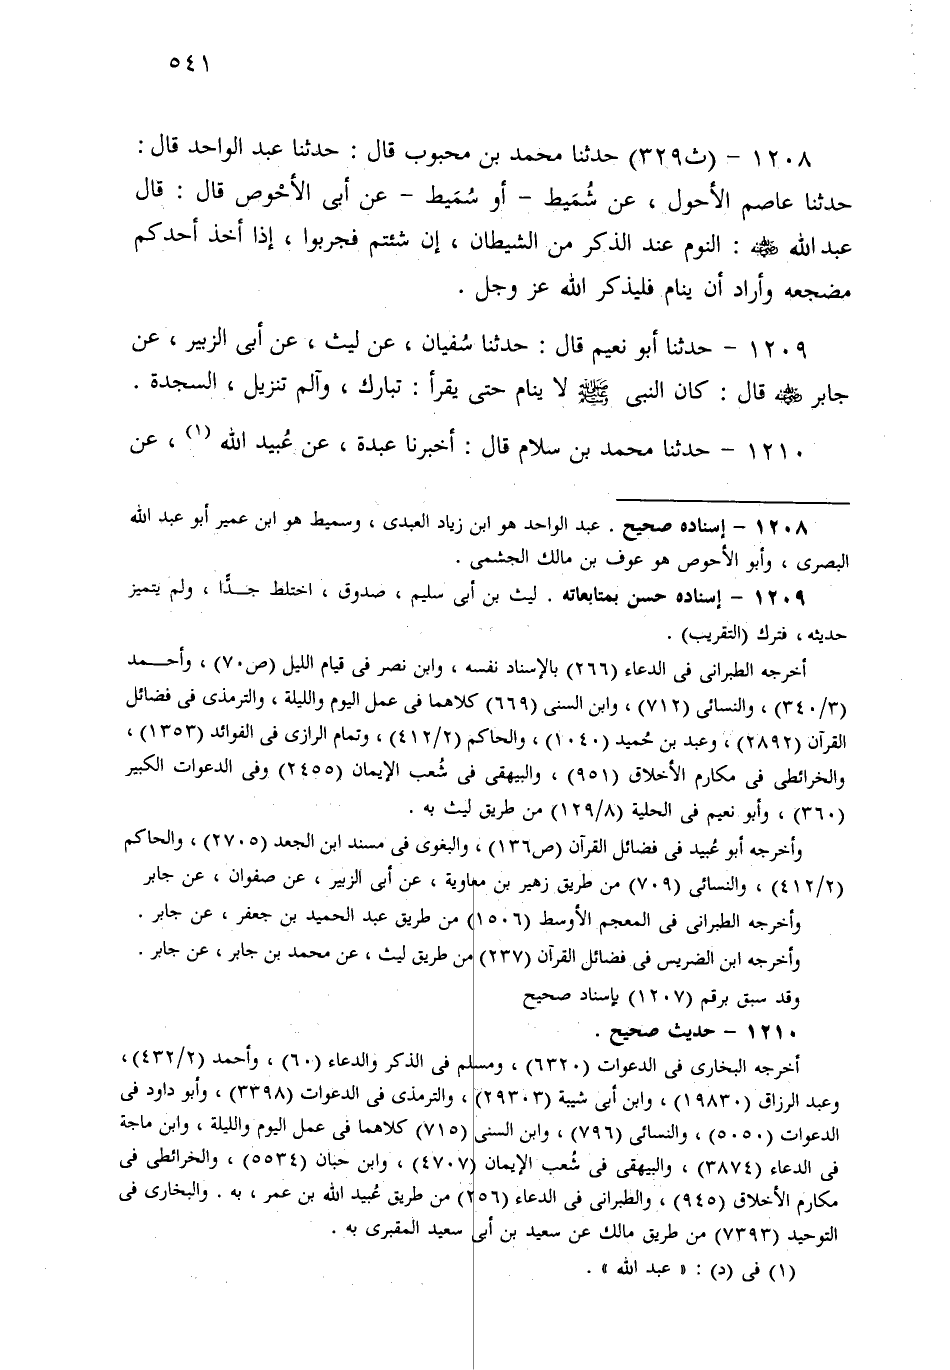 ٥٤١
١٢٠٨ – (ث٣٢٩) حدثنا محمد بن محبوب قال : حدثنا عبد الواحد قال :
حدثنا عاصم الأحول ، عن شُمَيط – أو سُمَيط – عن أبى الأحْوص قال : قال
عبد الله ﵁ : النوم عند الذكر من الشيطان ، إن شئتم فجربوا ، إذا أخذ أحدكم
مضجعه وأراد أن ينام فليذكر الله عز وجل .
١٢٠٩ – حدثنا أبو نعيم قال : حدثنا سُفيان ، عن ليث ، عن أبى الزبير ، عن
جابر ﵁ قال : كان النبى ﷺ لا ينام حتى يقرأ : تبارك ، وآلم تنزيل ، السجدة .
١٢١٠ – حدثنا محمد بن سلام قال : أخبرنا عبدة ، عن عُبيد الله (١) ، عن
١٢٠٨ – إسناده صحيح . عبد الواحد هو ابن زياد العبدى ، وسميط هو ابن عمير أبو عبد الله
البصرى ، وأبو الأحوص هو عوف بن مالك الجشمى .
١٢٠٩ – إسناده حسن بمتابعاته . ليث بن أبى سليم ، صدوق ، اختلط جـــدًّا ، ولم يتميز
حديثه ، فترك (التقريب) .
أخرجه الطبرانى فى الدعاء (٢٦٦) بالإسناد نفسه ، وابن نصر فى قيام الليل (ص٧٠) ، وأحـــمد
(٣٤٠/٣) ، والنسائى (٧١٢) ، وابن السنى (٦٦٩) كلاهما فى عمل اليوم والليلة ، والترمذى فى فضائل
القرآن (٢٨٩٢) ، وعبد بن حُميد (١٠٤٠) ، والحاكم (٤١٢/٢) ، وتمام الرازى فى الفوائد (١٣٥٣) ،
والخرائطى فى مكارم الأخلاق (٩٥١) ، والبيهقى فى شُعب الإيمان (٢٤٥٥) وفى الدعوات الكبير
(٣٦٠) ، وأبو نعيم فى الحلية (١٢٩/٨) من طريق ليث به .
وأخرجه أبو عُبيد فى فضائل القرآن (ص١٣٦) ، والبغوى فى مسند ابن الجعد (٢٧٠٥) ، والحاكم
(٤١٢/٢) ، والنسائى (٧٠٩) من طريق زهير بن معاوية ، عن أبى الزبير ، عن صفوان ، عن جابر
وأخرجه الطبرانى فى المعجم الأوسط (١٥٠٦) من طريق عبد الحميد بن جعفر ، عن جابر .
وأخرجه ابن الضريس فى فضائل القرآن (٢٣٧) من طريق ليث ، عن محمد بن جابر ، عن جابر .
وقد سبق برقم (١٢٠٧) بإسناد صحيح
١٢١٠ – حديث صحيح .
أخرجه البخارى فى الدعوات (٦٣٢٠) ، ومسلم فى الذكر والدعاء (٦٠) ، وأحمد (٤٣٢/٢) ،
وعبد الرزاق (١٩٨٣٠) ، وابن أبى شيبة (٢٩٣٠٣) ، والترمذى فى الدعوات (٣٣٩٨) ، وأبو داود فى
الدعوات (٥٠٥٠) ، والنسائى (٧٩٦) ، وابن السنى (٧١٥) كلاهما فى عمل اليوم والليلة ، وابن ماجة
فى الدعاء (٣٨٧٤) ، والبيهقى فى شُعب الإيمان (٤٧٠٧) ، وابن حبان (٥٥٣٤) ، والخرائطى فى
مكارم الأخلاق (٩٤٥) ، والطبرانى فى الدعاء (٢٥٦) من طريق عُبيد الله بن عمر ، به . والبخارى فى
التوحيد (٧٣٩٣) من طريق مالك عن سعيد بن أبى سعيد المقبرى به .
(١) فى (د) : « عبد الله » .